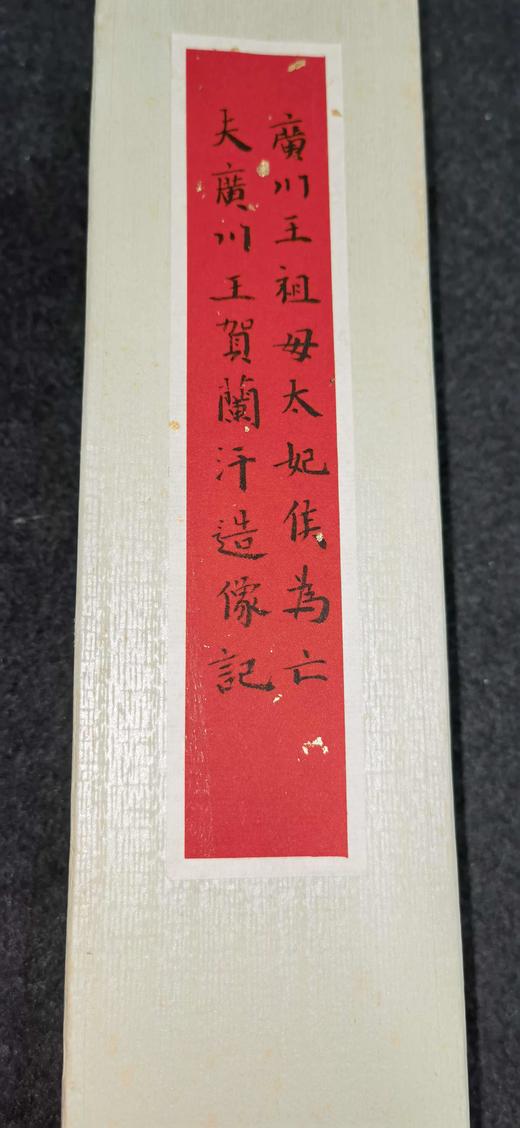 廣川王祖母太妃侯為亡
夫廣川王賀蘭汗造像記